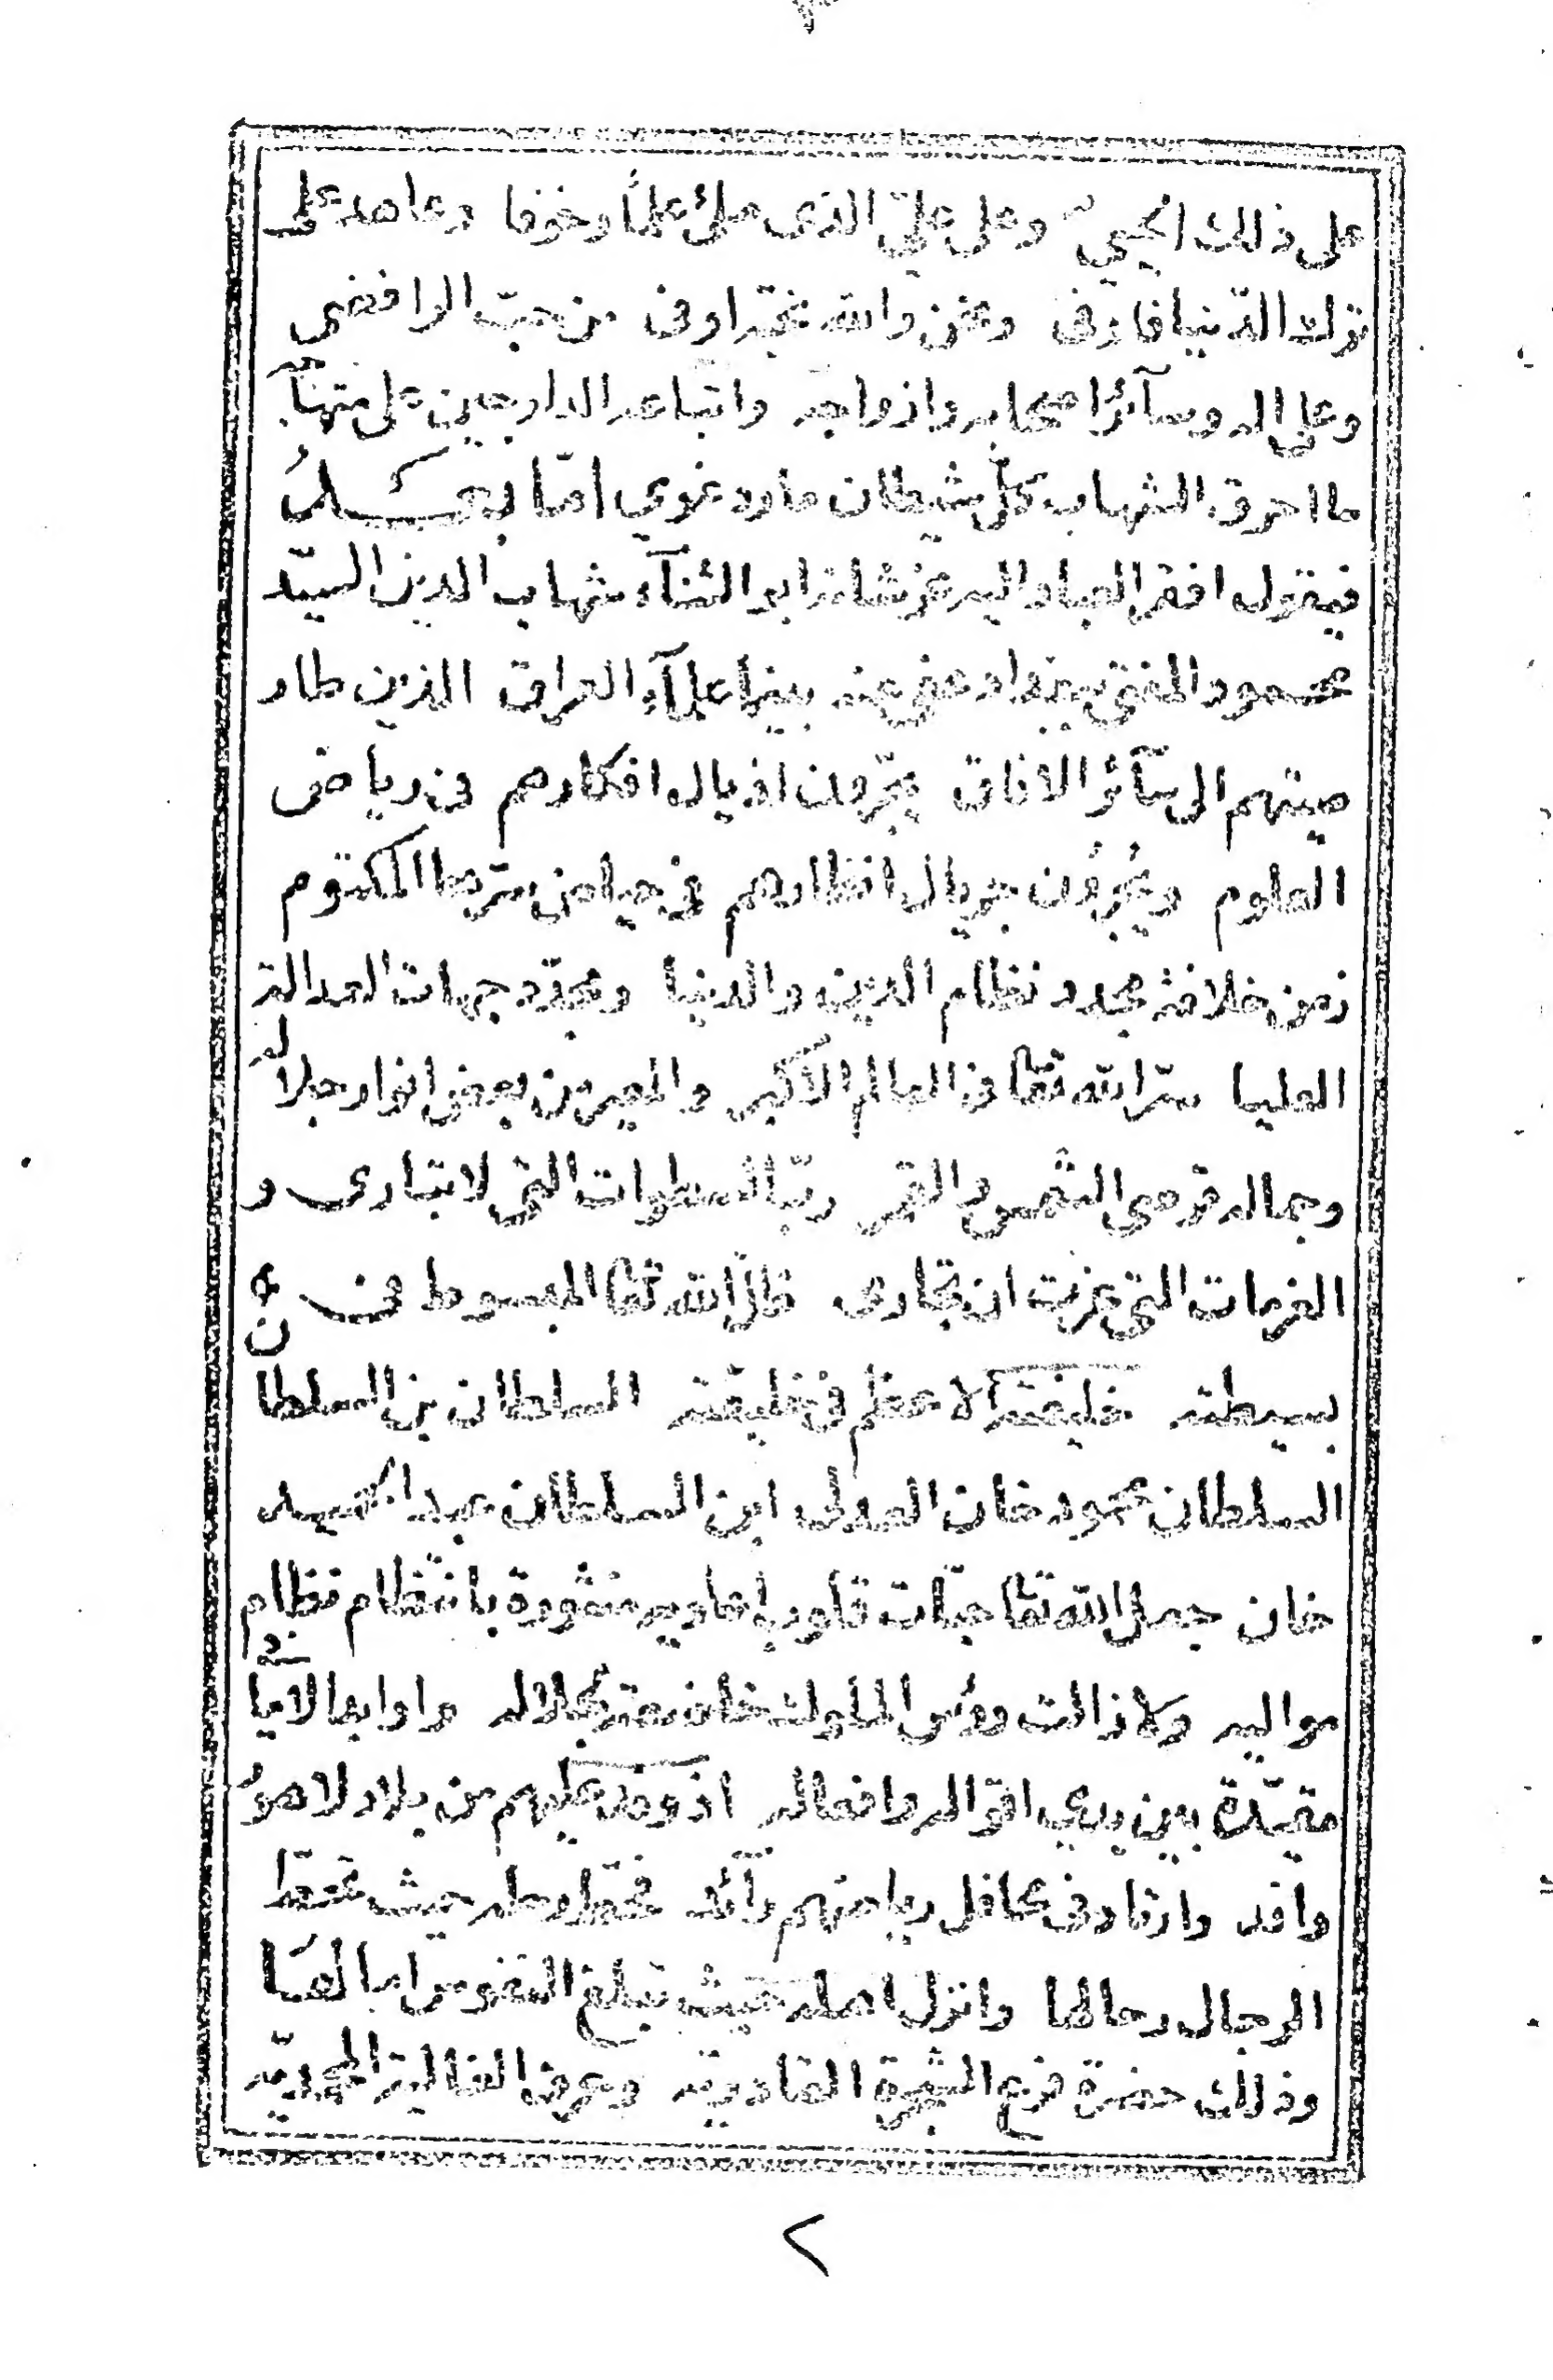 على ذلك الحيي وعلى عليّ الذى ملئ علماً وخوفا وعاهد على
ترك الدّنيا فاوفى ونحن والله نحبّه اوفى من حبّ الرافضي
وعلى اله وسآئر اصحابه وازواجه واتباعه الدارجين على
ما احرق الشهاب كلّ شيطان مارد غوي امّا بعــدُ
فيقول افقر العباد اليه عزّ شانه ابو الثنآء شهاب الدين السيّد
محمود المفتي ببغداد عفي عنه بينما علمآء العراق الذين طار
صيتهم الى سآئر الافاق يجرّون اذيال افكارهم فى رياض
العلوم ويُجرُون جريال انظارهم فى حياض سرها المكتوم
زمن خلافة مجدد نظام الدين والدنيا ومحدّد جهات العدالة
العليا سرّ الله تعا فى العالم الاكبر والمعير من بعض انوار جلاله
وجماله قرصي الشمس والقمر ربّ السطوات التي لا تبارى و
العزمات التي عزت ان تجارى ظلّ الله تعا المبسوط فى
بسيطته خليفته الاعظم فى خليقته السلطان بن السلطان
السلطان محمود خان العدلى ابن السلطان عبد الحميد
خان جعل الله تعا حبّات قلوب اعاديه منثورة بانتظام نظام
مواليه ولا زالت رؤس الملوك خاضعة لجلاله واوابد الاماني
مقيّدة بين يدي اقواله وافعاله اذ وفد عليهم من بلاد لاهور
وافد وارتاد فى محافل رياضهم رآئد فحطّ رحله حيث تحطّ
الرجال رحالها وانزل امله حيث تبلغ النفوس امالها
وذلك حضرة فرع الشجرة القادرية وعرف الغالية المجددية
٢